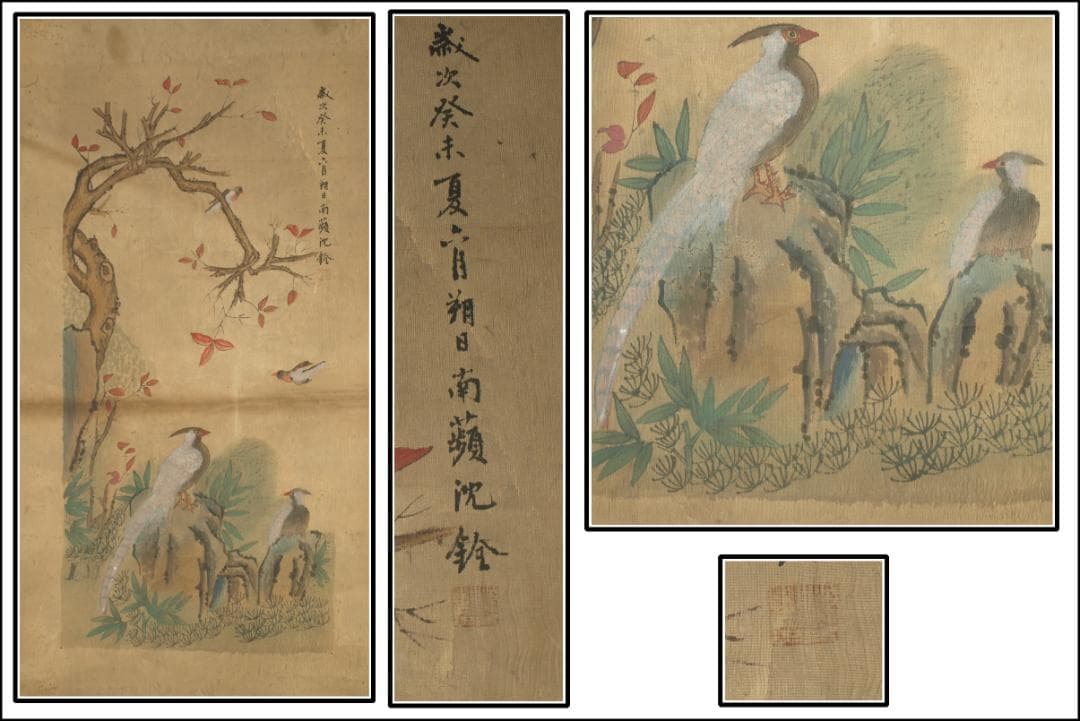 歲次癸未夏六月朔日南蘋沈銓
歲次癸未夏六月朔日南蘋沈銓